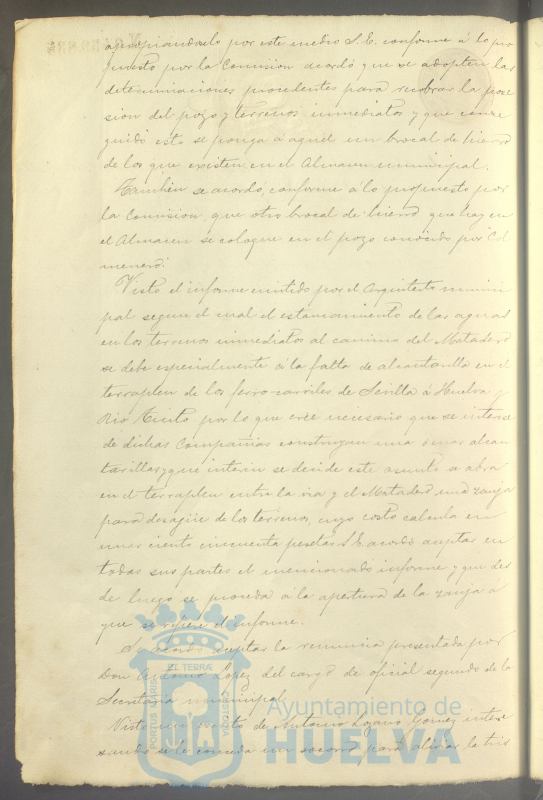 apropiandoselo por este medio S.E. conforme á lo pro
puesto por la Comision acordó que se adopten las
determinaciones procedentes para recobrar la pose
sion del pozo y terrenos inmediatos y que conse
guido esto se ponga á aquel un brocal de hierro
de los que existen en el Almacen municipal.
Tambien se acordo, conforme á lo propuesto por
la Comision, que otro brocal de hierro que hay en
el Almacen se coloque en el pozo conocido por "Col
menero".
Visto el informe emitido por el Arquitecto munici
pal segun el cual el estancamiento de las aguas
en los terrenos inmediatos al camino del Matadero
se debe especialmente á la falta de alcantarilla en el
terraplen de los ferro-carriles de Sevilla á Huelva y
Rio Tinto por lo que cree necesario que se interese
de dichas Compañias construyan una ó mas alcan
tarillas y que interin se decide este asunto se abra
en el terraplen entre la via y el Matadero una zanja
para desagüe de los terrenos, cuyo costo calcula en
unas ciento cincuenta pesetas S.E. acordó aceptar en
todas sus partes el mencionado informe y que des
de luego se proceda á la apertura de la zanja á
que se refiere el informe.
Se acordó aceptar la renuncia presentada por
Don Antonio Lopez del cargo de oficial segundo de la
Secretaria municipal.
Visto un escrito de Antonio Lozano Gomez intere
sando se le conceda un socorro para aliviar la tris
PORTUS MARIS ET TERRÆ CUSTODIA
Ayuntamiento de
HUELVA